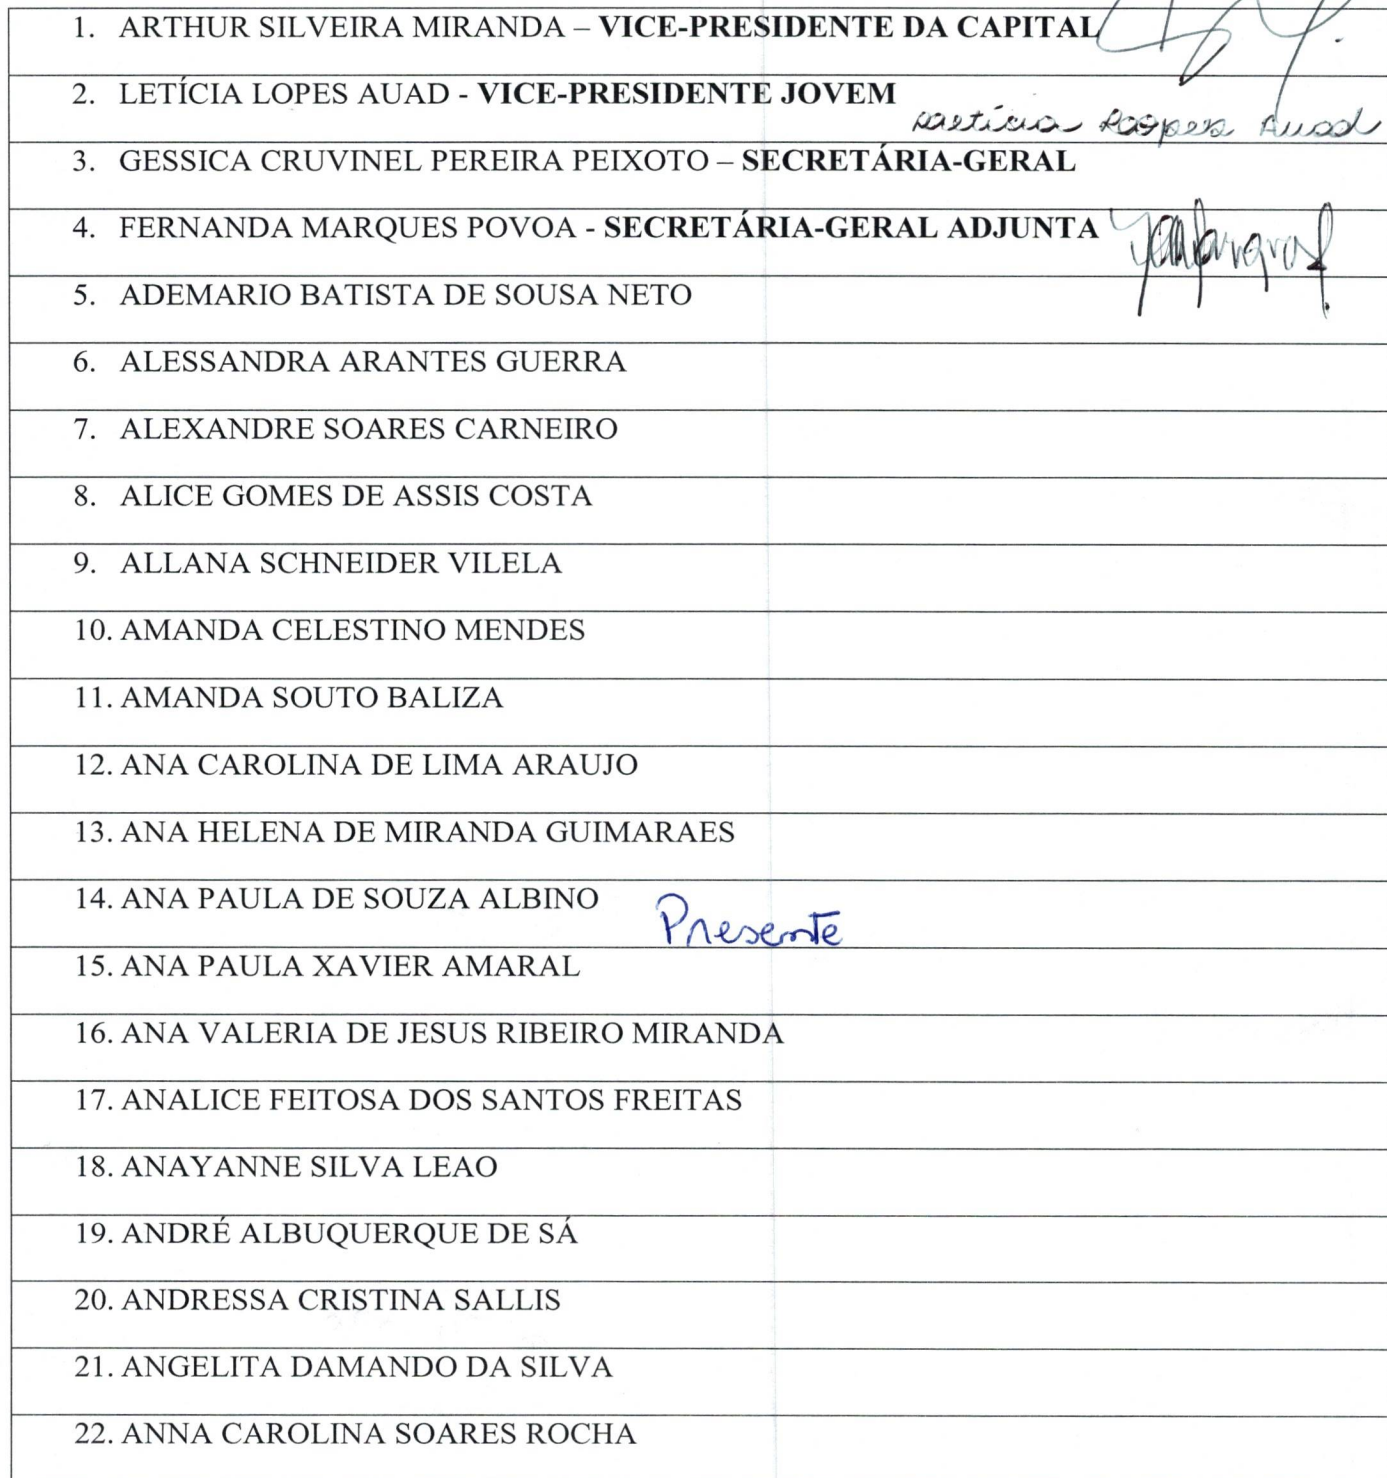 1. ARTHUR SILVEIRA MIRANDA – VICE-PRESIDENTE DA CAPITAL
2. LETÍCIA LOPES AUAD - VICE-PRESIDENTE JOVEM
Letícia Lopes Auad
3. GESSICA CRUVINEL PEREIRA PEIXOTO – SECRETÁRIA-GERAL
4. FERNANDA MARQUES POVOA - SECRETÁRIA-GERAL ADJUNTA
5. ADEMARIO BATISTA DE SOUSA NETO
6. ALESSANDRA ARANTES GUERRA
7. ALEXANDRE SOARES CARNEIRO
8. ALICE GOMES DE ASSIS COSTA
9. ALLANA SCHNEIDER VILELA
10. AMANDA CELESTINO MENDES
11. AMANDA SOUTO BALIZA
12. ANA CAROLINA DE LIMA ARAUJO
13. ANA HELENA DE MIRANDA GUIMARAES
14. ANA PAULA DE SOUZA ALBINO
Presente
15. ANA PAULA XAVIER AMARAL
16. ANA VALERIA DE JESUS RIBEIRO MIRANDA
17. ANALICE FEITOSA DOS SANTOS FREITAS
18. ANAYANNE SILVA LEAO
19. ANDRÉ ALBUQUERQUE DE SÁ
20. ANDRESSA CRISTINA SALLIS
21. ANGELITA DAMANDO DA SILVA
22. ANNA CAROLINA SOARES ROCHA